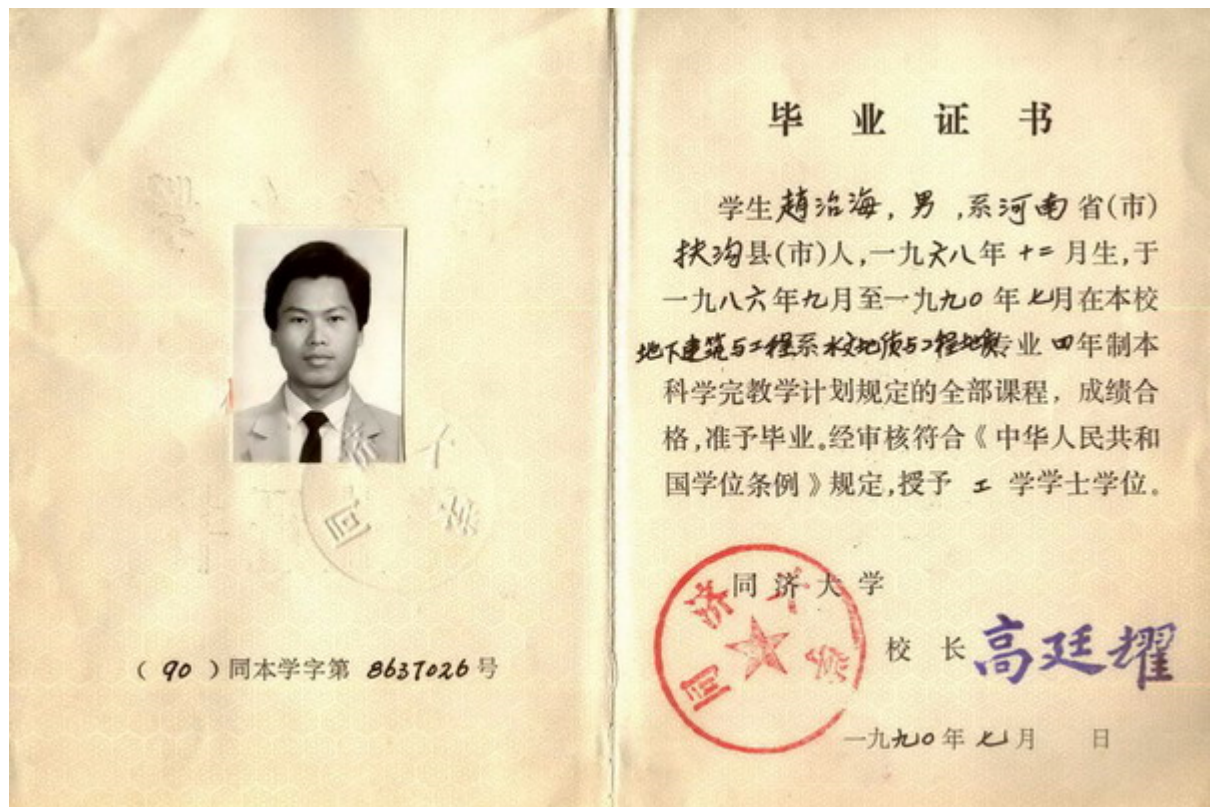 （90）同本学字第 8637026 号
毕业证书
学生趙治海，男，系河南省(市)
扶沟县(市)人,一九六八年十二月生,于
一九八六年九月至一九九0年七月在本校
地下建筑与工程系水文地质与工程地质专业四年制本
科学完教学计划规定的全部课程，成绩合
格,准予毕业。经审核符合《中华人民共和
国学位条例》规定,授予 工 学学士学位。
同济大学
同济大学
校长 高廷耀
一九九0年七月 日